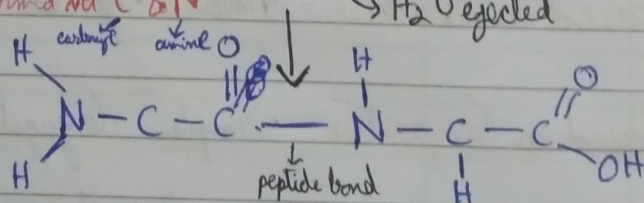 → H2O ejected
carbonyl amine O
H H
|| O
N - C - C - N - C - C //
H | OH
peptide bond H